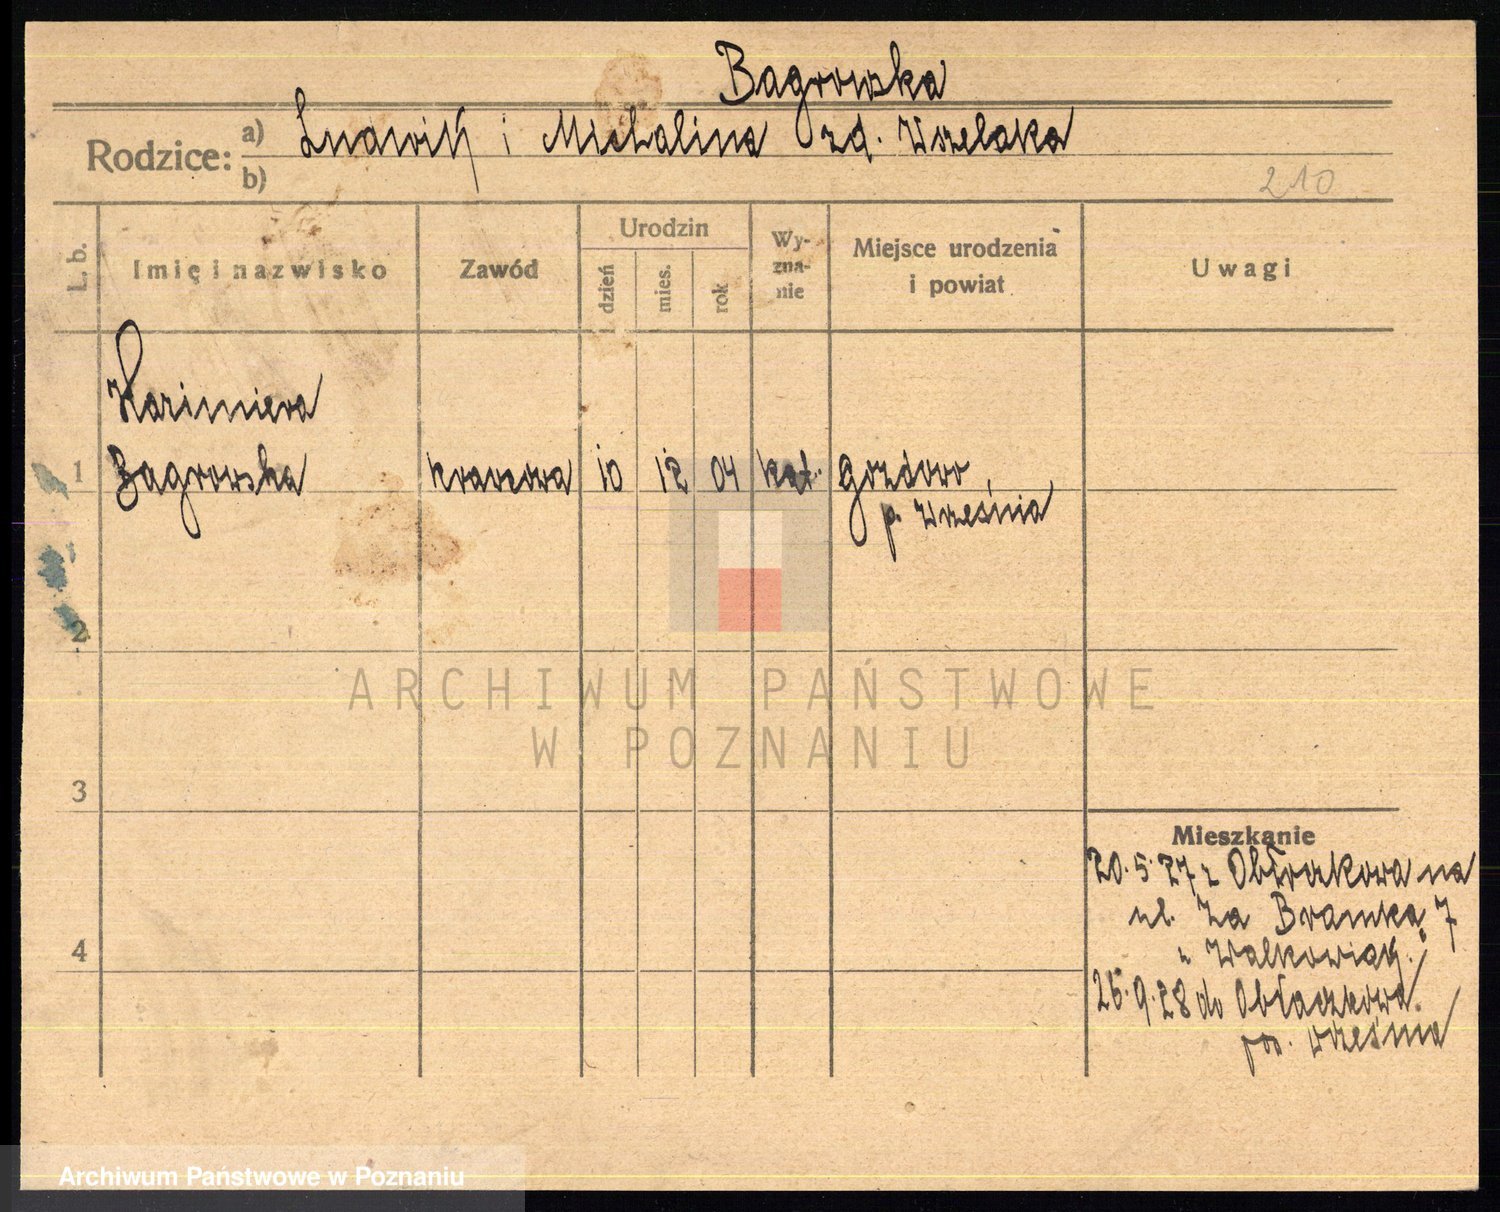 Bagrowska
Rodzice: a) Ludwik i Michalina zd. Wrzelaka
b)
210
L. b.
Imię i nazwisko
Zawód
Urodzin
dzień
mies.
rok
Wy-
zna-
nie
Miejsce urodzenia
i powiat
Uwagi
Kazimiera
1 Bagrowska krawcowa 10 12 04 kat. Gozdowo,
p. Września
2
ARCHIWUM PAŃSTWOWE
W POZNANIU
3
Mieszkanie
20.5.27 z Obłaczkowa na
ul. Za Bramką 7
4
u Walkowiak.
26.9.28 do Obłaczkowa
pow. Września
Archiwum Państwowe w Poznaniu